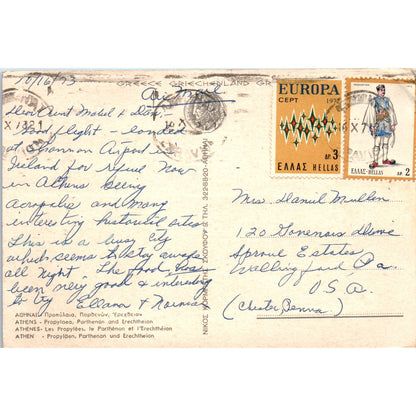 10/16/73
GREECE GRIECHENLAND GR
Air Mail
Dear Aunt Mabel & Dan,
Good flight - landed
at Shannon Airport in
Ireland for refuel. Now
in Athens seeing
acropolis and many
interesting historical sites
This is a busy city
which seems to stay awake
all night. The food has
been very good & interesting
to try Ellana & Norman
ΑΘΗΝΑΙ - Προπύλαια, Παρθενών, Ἐρεχθεῖον
ATHENS - Propylaea, Parthenon and Erechtheion
ATHÈNES - Les Propylées, le Parthénon et l'Erechthéion
ATHEN - Propyläen, Parthenon und Erechtheion
ΤΗΛ. 3228820
EUROPA
CEPT
ΔΡ. 3
ΕΛΛΑΣ HELLAS
ΕΛΛΑΣ-HELLAS ΔΡ. 2
Mrs. Daniel Mullen
120 Drive
Sproul Estates
Wallingford Pa.
U.S.A.
(Chester Penna.)